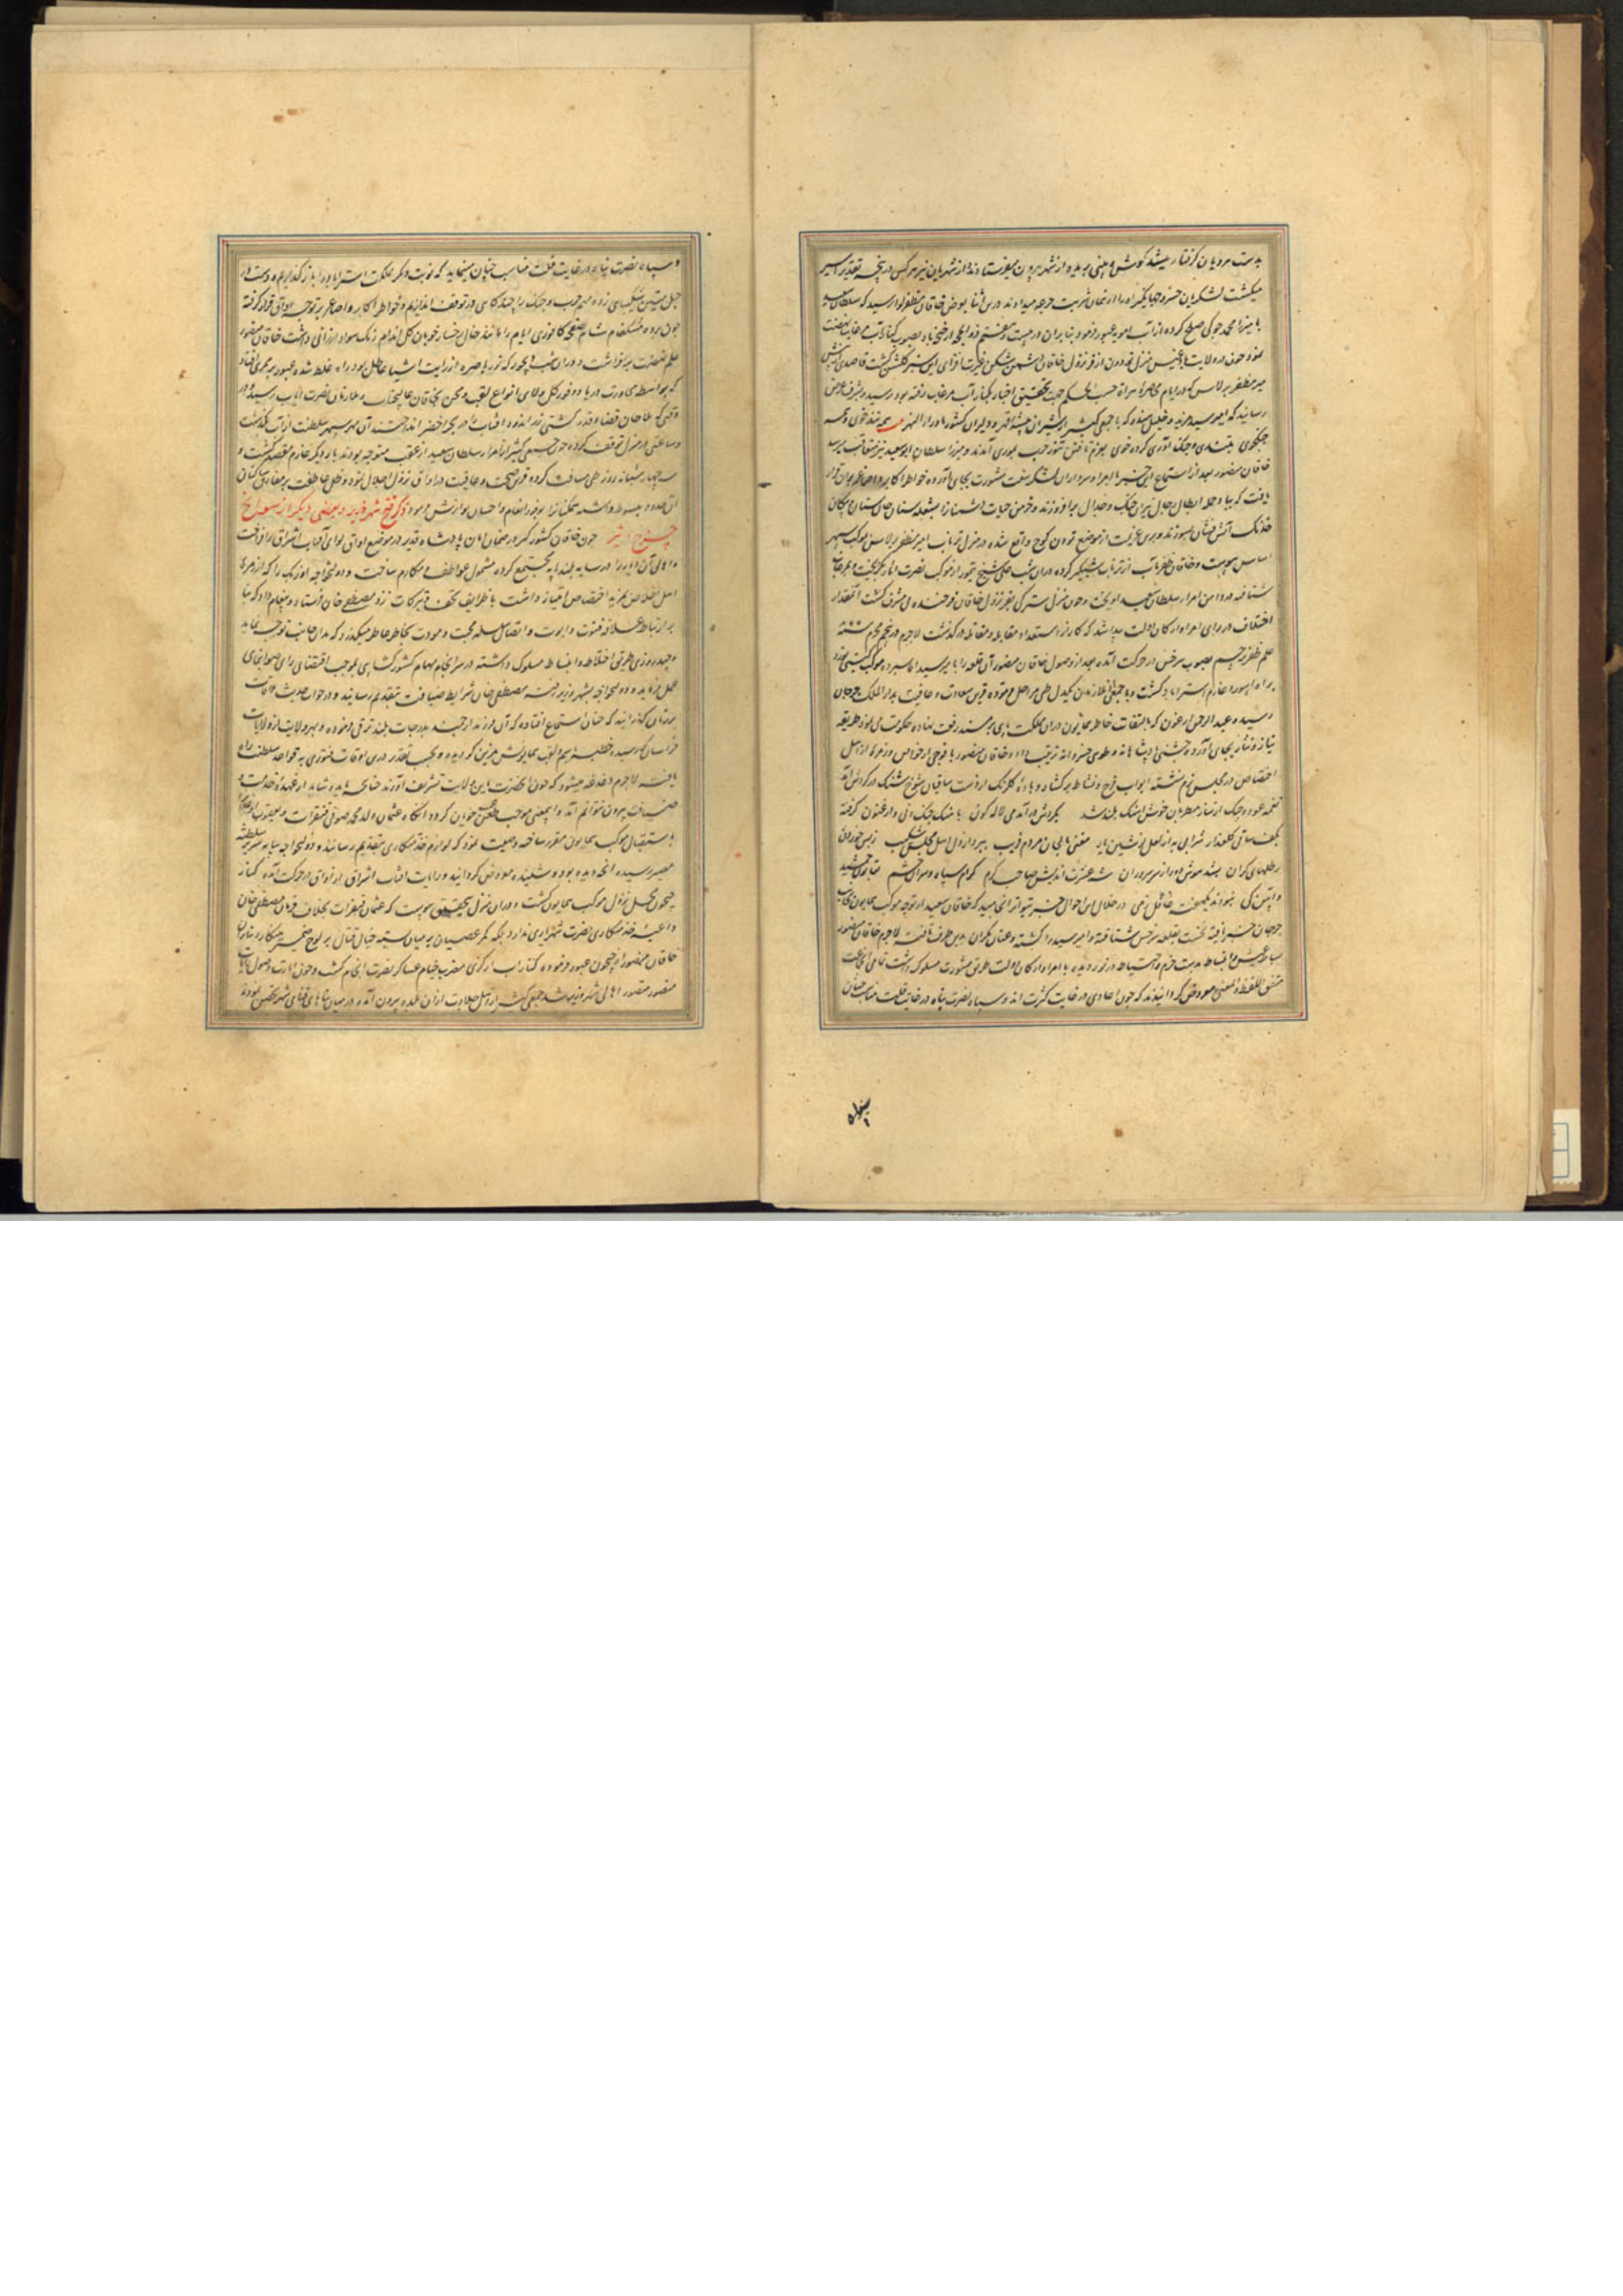 بدست هرویان گرفتار میشد گوش و بینی بریده از شهر بیرون میفرستادند از شهریان نیز هر کس در پنجه تقدیر اسیر
میکشت لشکریان خسرو جهانگیر او را از همان شربت جرعه میدادند درین اثنا بعرض خاقان مظفر لوا رسید که سلطان سعید
با میرزا محمد جوکی صلح کرده از آب امویه عبور فرمود بنابران در بیست و هفتم ذوالحجه از ضیحاباد بصوب کنار آب مرغاب نهضت
نمود چون در ولایت بادغیس منزل تودون از فر نزول خاقان دشمن شکن غیرت افزای این سبز گلشن گشت قاصدی پیش
میر مظفر برلاس که در ایام محاصره هراة حسب الحکم جهت تحقیق اخبار بکنار آب مرغاب رفته بود رسید و بشرف عرض
رسانید که امیر سید مزید و خلیل هندوکه با جمعی کثیر از شیران بیشه قهر و دلیران کشور ماوراءالنهر همه تند خوی و همه
جنگجوی بلندی و جنک آوری کرده خوی بعزم تافتن تنور حرب بموری آمدند و میرزا سلطان ابوسعید نیز متعاقب میرسد
خاقان منصور بعد از استماع این خبر با امرا و سرداران لشکر سنت مشورت بجای آورده خواطر اکابر و اصاغر بران قرار
یافت که بیاد حمله ابطال رجال نیران جنک و جدال برافروزند و خرمن حیات دشمنان را بشعله سنان جان ستان و پیکان
خدنک آتش فشان بسوزند و برین عزیمت از موضع تودون کوچ واقع شده در منزل ترناب امیر مظفر برلاس بموکب سپهر
اساس پیوست و خاقان ظفر مآب از ترناب شبگیر کرده دران شب علی شیخ تیمور از موکب نصرت اثار بگریخت و بمرغاب
شتافته در دامن امراء سلطان سعید آویخت و چون منزل سترکی بفر نزول خاقان فرخنده پی مشرف گشت آنمقدار
اختلاف در رای امرا و ارکان دولت پیدا شد که کار از استعداد مقابله و مقاتله درگذشت لاجرم در پنجم محرم سنه
علم ظفر پرچم بصوب سرخس در حرکت آمده بعد از وصول خاقان منصور آن قلعه را بامیر سید اقا سپرده موکب گیتی نورد
براه ابیورد عازم استراباد گشت و با جمعی از ملازمان یکدل طی مراحل فرموده قرین سعادت و عافیت بدار الملک جرجان
رسیده عبد الرحمن ارغون که بالتفات خاطر همایون دران مملکت پای بر مسند رفعت نهاده حکومت مینمود طریقه
نیاز و نثار بجای آورده جشنی پادشاهانه و طوی خسروانه ترتیب داد و خاقان منصور با فوجی از خواص و زمره از اهل
اختصاص در مجلس بزم نشسته ابواب فرح و نشاط برگشاد و باده گلرنک از دست ساقیان شوخ شنک در گردش آمد
نغمه عود و چنک از ساز مطربان خوش آهنک بلند شد بگردش درآمد می لاله گون با هنک چنک و نی و ارغنون گرفته
بکف ساقی گلعذار شرابی به از لعل نوشین یار مغنی بالحان مردم فریب ببرد از دل اهل مجلس شکیب ز بس خوردن
رطلهای گران بشد هوش و راز سر سروران شه عشرت اندیش صاحب کرم گرم سپاه و سرای حشم
در خلال این احوال خبر بتواتر انجامید که خاقان سعید از توجه موکب همایون بجانب
جرجان خبر یافته نخست بقلعه سرخس شتافته و امیر سید را کشته و عنان یکران بدین طرف تافته لاجرم خاقان منصور
بساط عیش و انبساط بدست حزم و احتیاط درنوردیده با امرا و ارکان دولت طریق مشورت مسلوک داشت تمامی ان جماعت
متفق اللفظ و المعنی معروض گردانیدند که چون اعادی در غایت کثرت اند و سپاه نصرت پناه در غایت قلت مناسب چنان
سپاه
و سپاه نصرت پناه در غایت قلت مناسب چنان مینماید که نوبت دیگر مملکت استراباد را باز گذاریم و دست در
حبل المتین شکیبایی زده مهم حرب و جنک را چند گاهی در توقف اندازیم و خواطر اکابر و اصاغر بر توجه اداق قرار گرفته
چون پرده مشکفام شام صفحه کافوری ایام را مانند خال رخسار خوبان گل اندام رنک سواد ارزانی داشت خاقان منصور
علم نهضت برافراشت و دران شب دیجور که نور باصره از رؤیت اشیا عاطل بود راه غلط شده عبور بر ممری افتاد
که بواسطه مجاورت دریا و وفور گل و لای انواع تعب و محن بخاقان عالیجناب و ملازمان نصرت ایاب رسید و در
وقتی که ملاحان قضا و قدر کشتی زراندود آفتاب را در بحر اخضر انداختند آن مهر سپهر سلطنت از آب بگذشت
و ساعتی در منزل توقف کرده چون جمعی کثیر از امراء سلطان سعید از عقب متوجه بودند بار دیگر عازم مقصد گشت و
سه چهار شبانه روز طی مسافت کرده قرین صحت و عافیت در اداق نزول اجلال نمود و ظل عاطفت بر مفارق ساکنان
ان حدود مبسوط داشته همکنانرا بوفور انعام و احسان نوازش فرمود ذکر فتح شهر وزیر و بعضی دیگر از سوانح
چون خاقان کشورگیر در ضمان امان پادشاه قدیر در موضع اداق لوای آفتاب اشراق برافراخت
و اهالی آن دیار را در سایه بلندپایه مجتمع کرده مشمول عواطف و مکارم ساخت دولتخواجه اوزبک را که از مرء
اهل اخلاص بمزید اختصاص امتیاز داشت با ظرایف تحف و تبرکات نزد مصطفی خان فرستاد و پیغام داد که بنا
بر ارتباط علاقه فتوت و ابوت و اتصال سلسله محبت و مودت بخاطر عاطر میگذرد که بدان جانب توجه نماید
و چند روزی طریق اختلاط و انبساط مسلوک داشته در سرانجام مهام کشورگشایی بموجب اقتضای رای صوابنمای
عمل نماید و دولتخواجه بشهر وزیر رفته مصطفی خان شرایط ضیافت بتقدیم رسانید و در جواب حدیث ملاقات
بر زبان گذرانید که چنان استماع افتاده که آن فرزند ارجمند بدرجات بلند ترقی فرموده و بهر ولایت از ولایات
خراسان که رسیده خطبه باسم و لقب همایونش مزین گردیده و بحسب تقدیر درین اوقات فتوری بقواعد سلطنت راه
یافته لاجرم دغدغه میشود که چون آنحضرت باین ولایت تشریف آورند چنانچه باید و شاید از عهده خدمت و
ضیافت بیرون نتوانیم آمد و اینمعنی موجب طعن عیب جویان گردد آنگاه عثمان ولد محمد صوفی قنقرات و
باستقبال موکب همایون مقرر ساخته وصیت نمود که لوازم خدمتکاری بتقدیم رسانند و دولتخواجه بپایه سریر سلطنت
مصیر رسیده آنچه دیده بود و شنیده معروض گردانید و رایات آفتاب اشراق از اداق در حرکت آمده کنار
جیحون محل نزول موکب همایون گشت و دران منزل بتحقیق پیوست که عثمان قنقرات بخلاف فرمان مصطفی خان
داعیه خدمتکاری حضرت شهریاری ندارد بلکه کمر عصیان بر میان بسته خیال قتال بر لوح ضمیر مینگارد بنابران
خاقان منصور از جیحون عبور فرموده کنار آب ارکزی مضرب خیام عساکر نصرت انجام گشت و چون امارت وصول رایات
منصور متصور اهالی شهر وزیر شد جمعی کثیر از اهل جلادت ازان بلده بیرون آمده در میان بناهای فنای شهر متحصن بودند